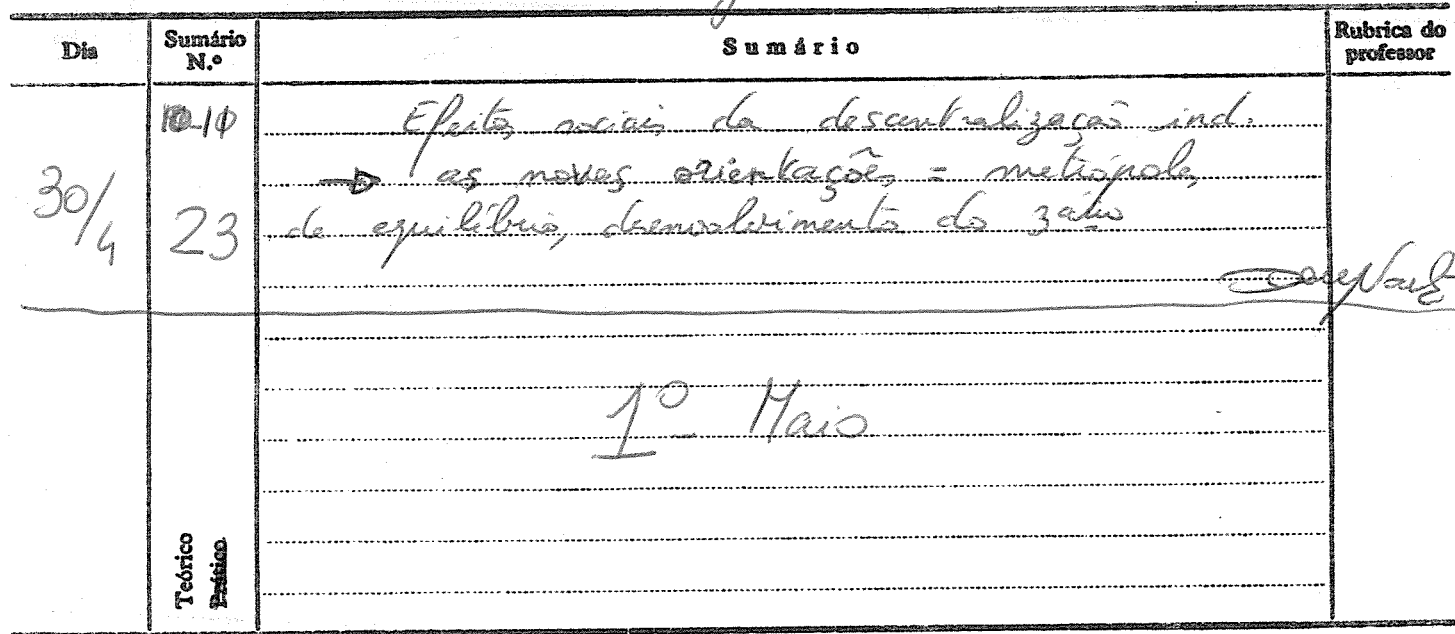 Dia Sumário N.º Sumário Rubrica do professor
10
Efeitos sociais da descentralização ind.
→ as novas orientações = metrópoles
30/4 23 de equilíbrio, desenvolvimento do
1º Maio
Teórico
Prático